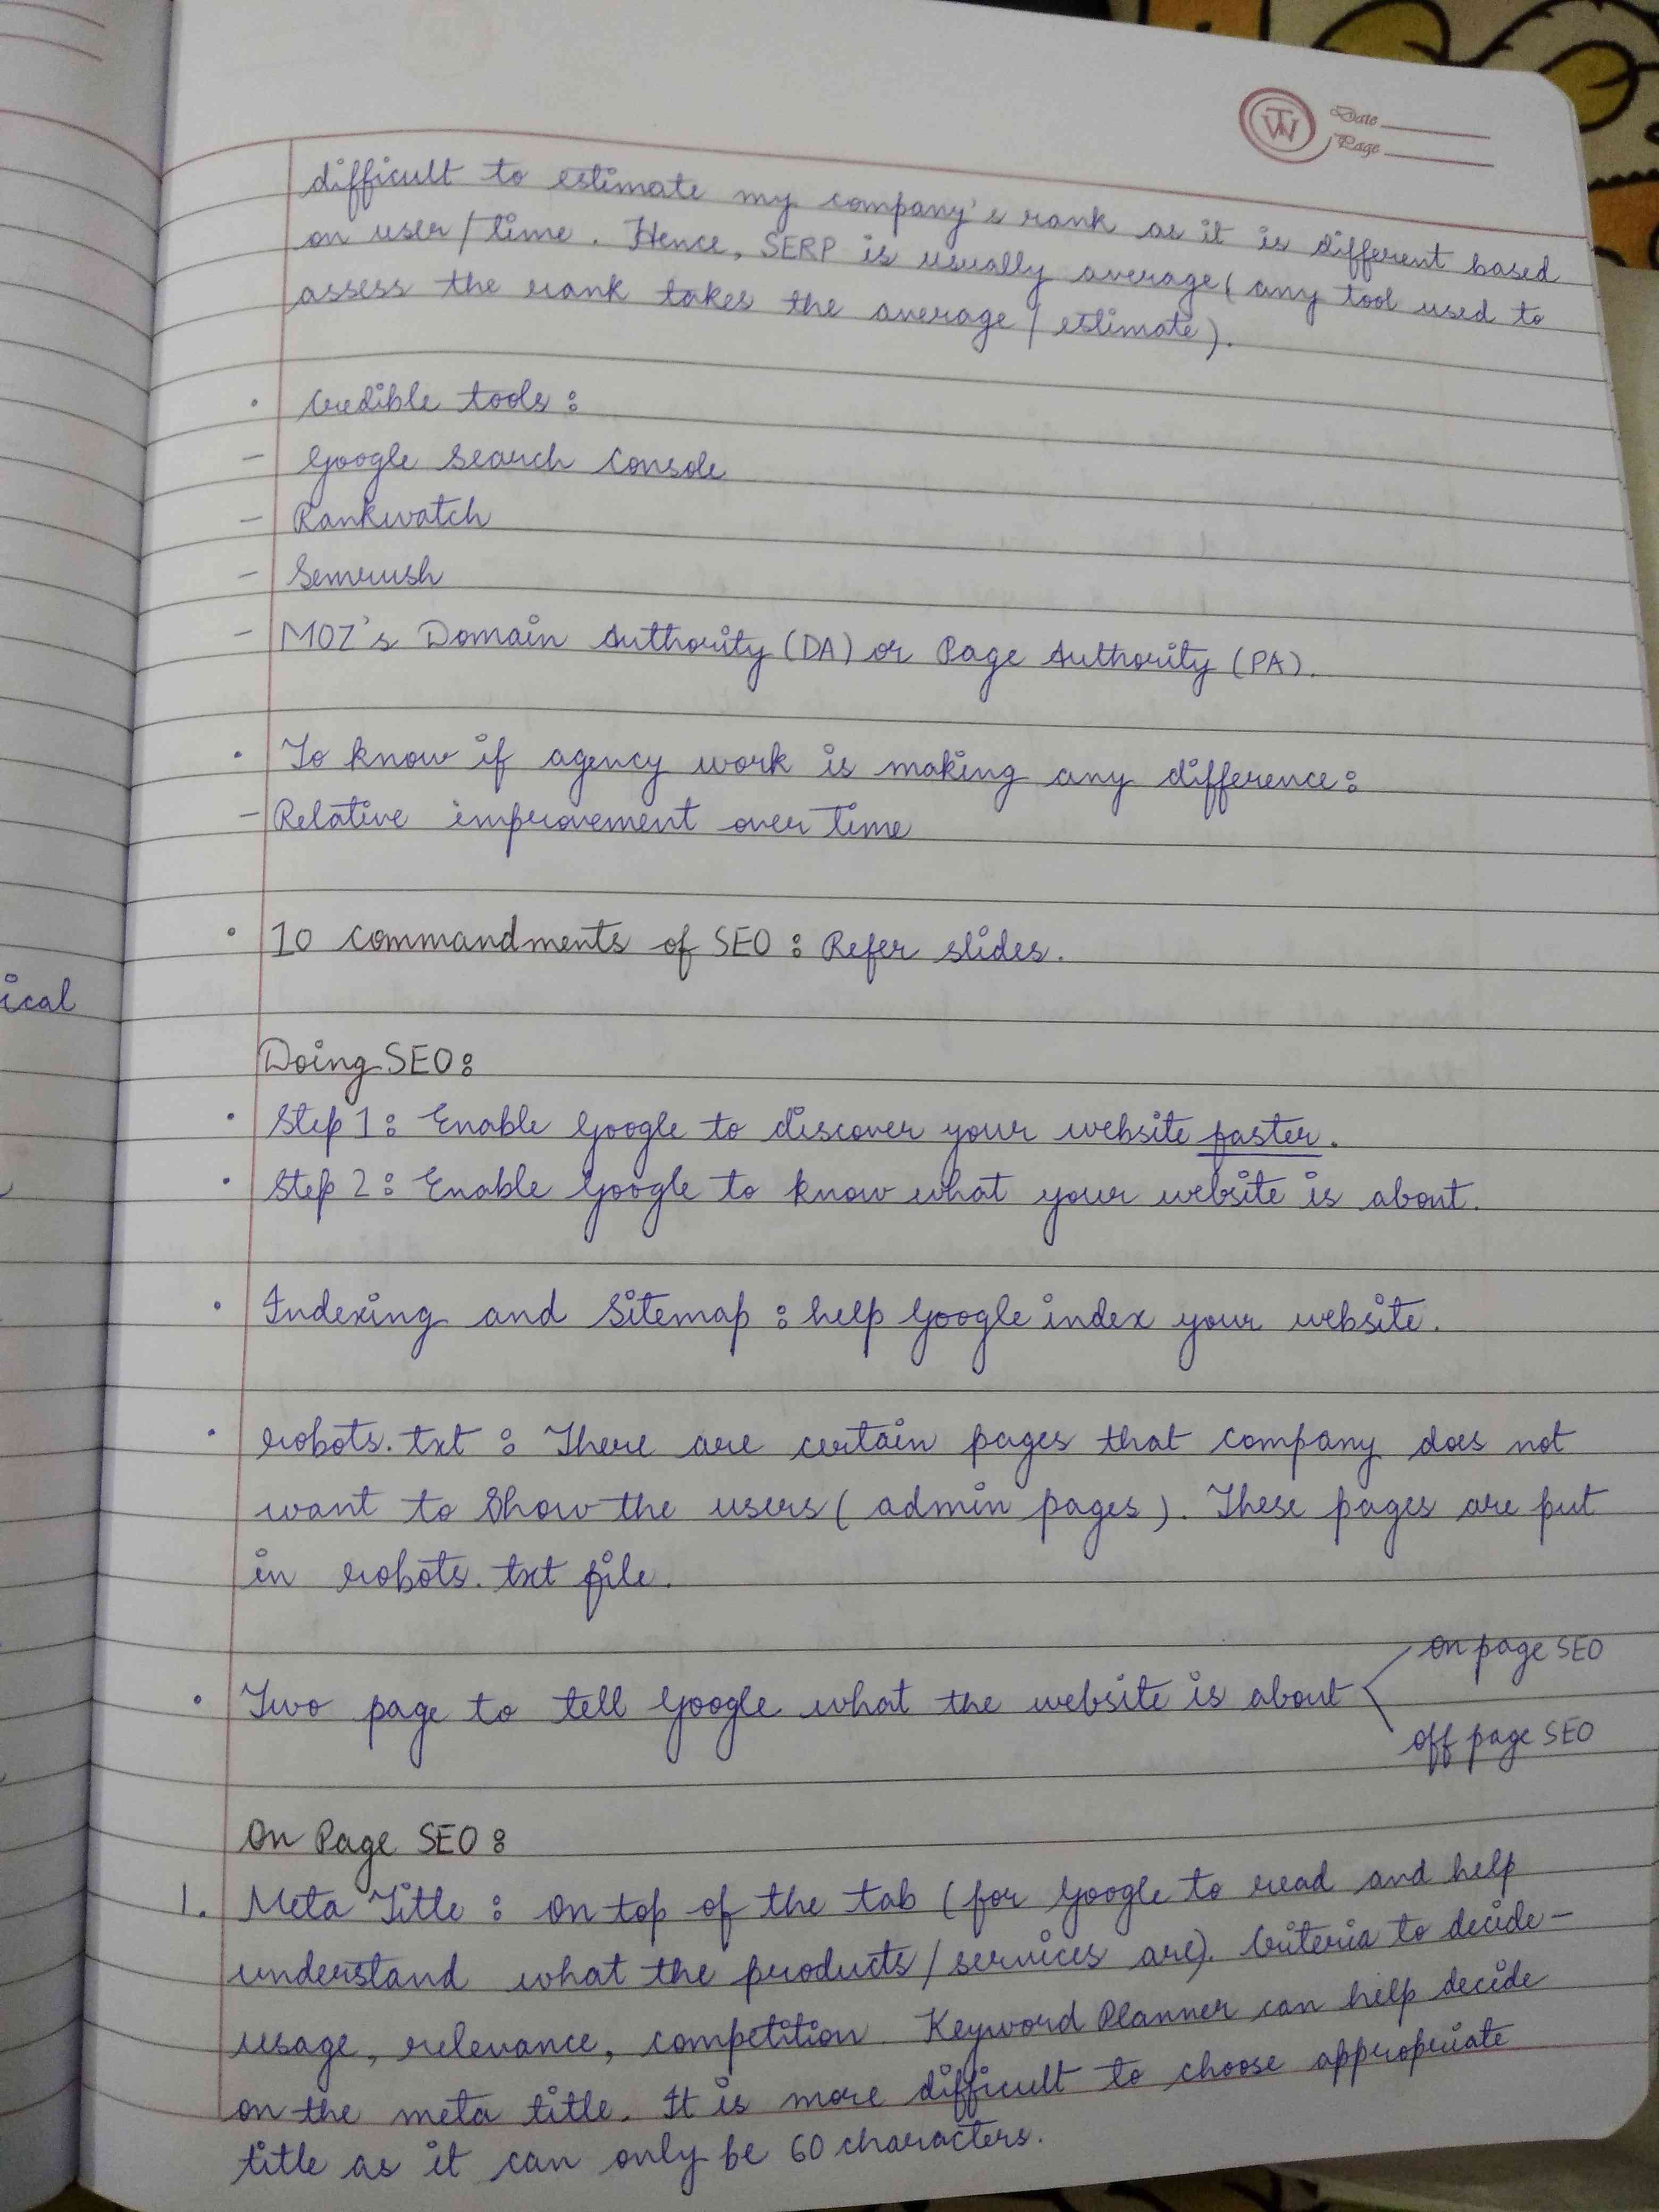 Date
Page
difficult to estimate my company's rank as it is different based
on user/time. Hence, SERP is usually average (any tool used to
assess the rank takes the average/estimate).
• Credible tools:
- Google Search Console
- Rankwatch
- Semrush
- MOZ's Domain Authority (DA) or Page Authority (PA).
• To know if agency work is making any difference:
- Relative improvement over time
• 10 commandments of SEO: Refer slides.
ical
Doing SEO:
• Step 1: Enable Google to discover your website faster.
• Step 2: Enable Google to know what your website is about.
• Indexing and Sitemap: help Google index your website.
• robots.txt: There are certain pages that company does not
want to show the users (admin pages). These pages are put
in robots.txt file.
on page SEO
• Two page to tell Google what the website is about
off page SEO
On Page SEO:
1. Meta Title: On top of the tab (for Google to read and help
understand what the products/services are). Criteria to decide-
usage, relevance, competition. Keyword Planner can help decide
on the meta title. It is more difficult to choose appropriate
title as it can only be 60 characters.